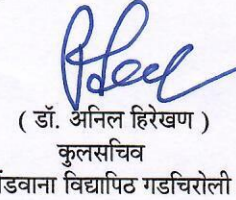 ( डॉ. अनिल हिरेखण )
कुलसचिव
विद्यापिठ गडचिरोली